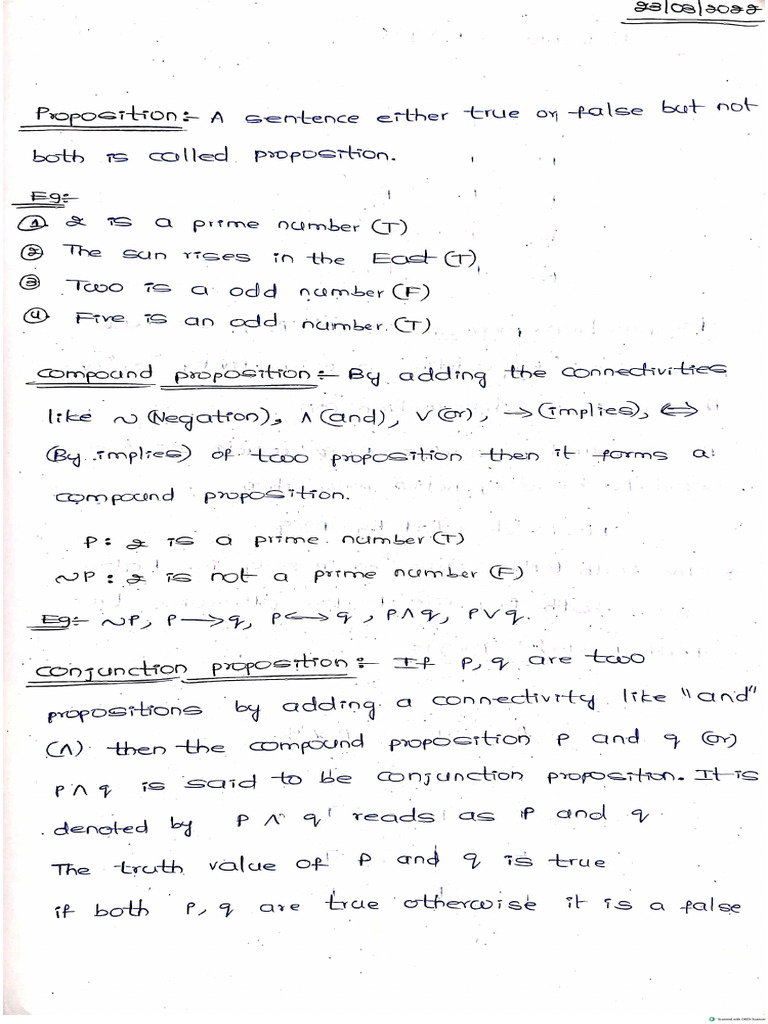 23/03/2022
Proposition:- A sentence either true or false but not
both is called proposition.
Eg:-
① 2 is a prime number (T)
② The sun rises in the East (T)
③ Two is a odd number (F)
④ Five is an odd number. (T)
Compound proposition:- By adding the connectivities
like ~ (Negation), ∧ (and), ∨ (or), → (implies), ⟺
(By implies) of two proposition then it forms a
compound proposition.
P: 2 is a prime number (T)
~P: 2 is not a prime number (F)
Eg:- ~P, P→q, P⟷q, P∧q, P∨q.
Conjunction proposition:- If P, q are two
propositions by adding a connectivity like "and"
(∧) then the compound proposition P and q (or)
P∧q is said to be conjunction proposition. It is
denoted by P∧q reads as P and q
The truth value of P and q is true
if both P, q are true otherwise it is a false
Scanned with OKEN Scanner